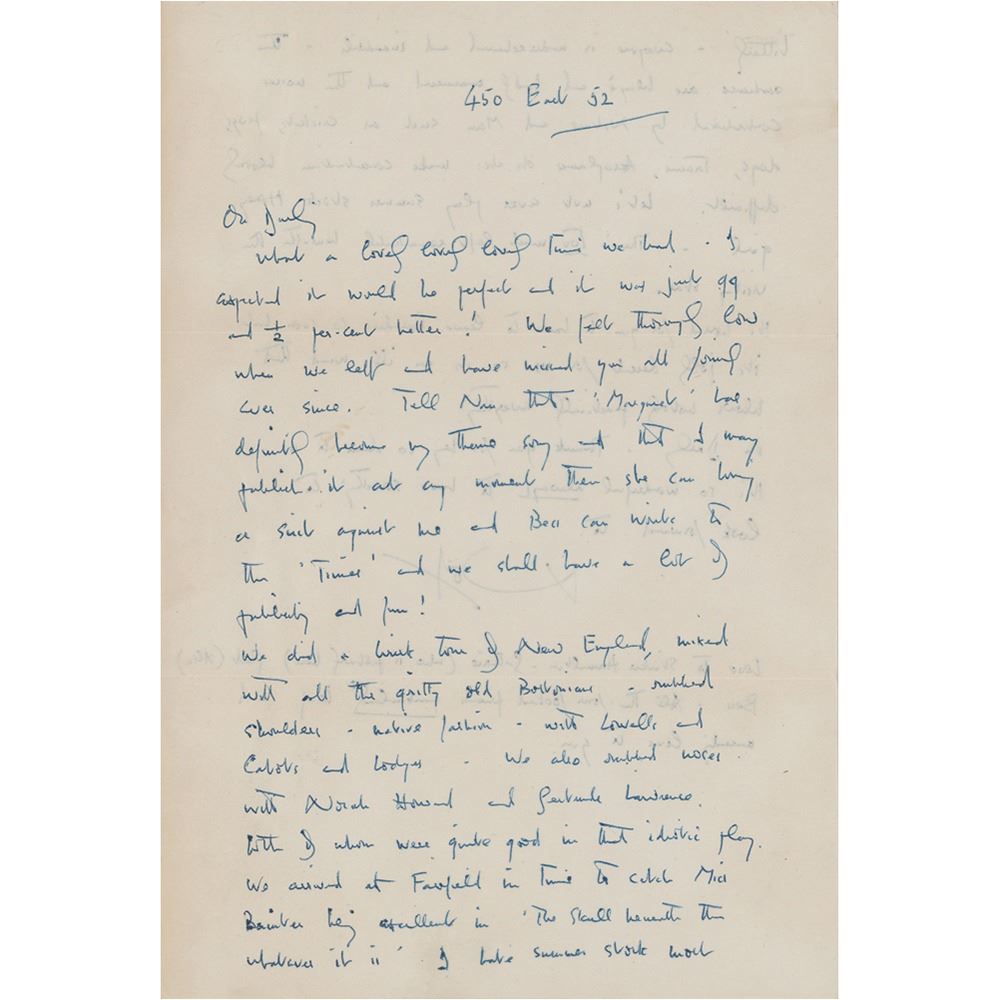 450 East 52
Oh Darling
What a lovely lovely lovely time we had. I
expected it would be perfect and it was just 99
and ½ per-cent better! We felt thoroughly low
when we left and have missed you all
ever since. Tell Nan that 'Marguerite' has
definitely become my theme song and that I may
publish it at any moment then she can bring
a suit against me and Bea can write to
the 'Times' and we shall have a lot of
publicity and fun!
We did a brisk tour of New England, mixed
with all the gritty old Bostonians - rubbed
shoulders - native fashion - with Lowells and
Cabots and Lodges - We also rubbed noses
with Norah Howard and Gertrude Lawrence.
Both of whom were quite good in that idiotic play.
We arrived at Fairfield in time to catch Miss
Bainter being excellent in 'The Skull beneath the
whatever it is' I hate summer stock most